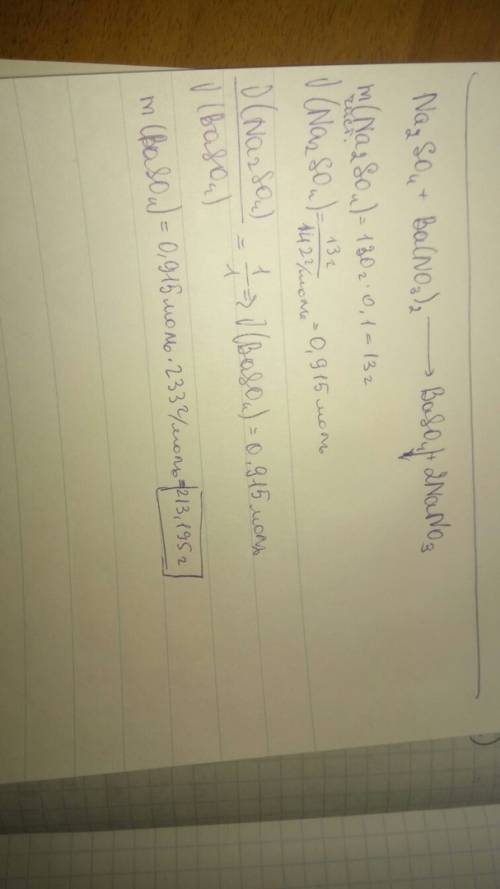 Na₂SO₄ + Ba(NO₃)₂ ⟶ BaSO₄↓ + 2NaNO₃
m част.(Na₂SO₄) = 130г · 0,1 = 13г
ν(Na₂SO₄) = 13г / 142г/моль = 0,915 моль
ν(Na₂SO₄) / ν(BaSO₄) = 1/1 ⇒ ν(BaSO₄) = 0,915 моль
m(BaSO₄) = 0,915 моль · 233г/моль = 213,195г